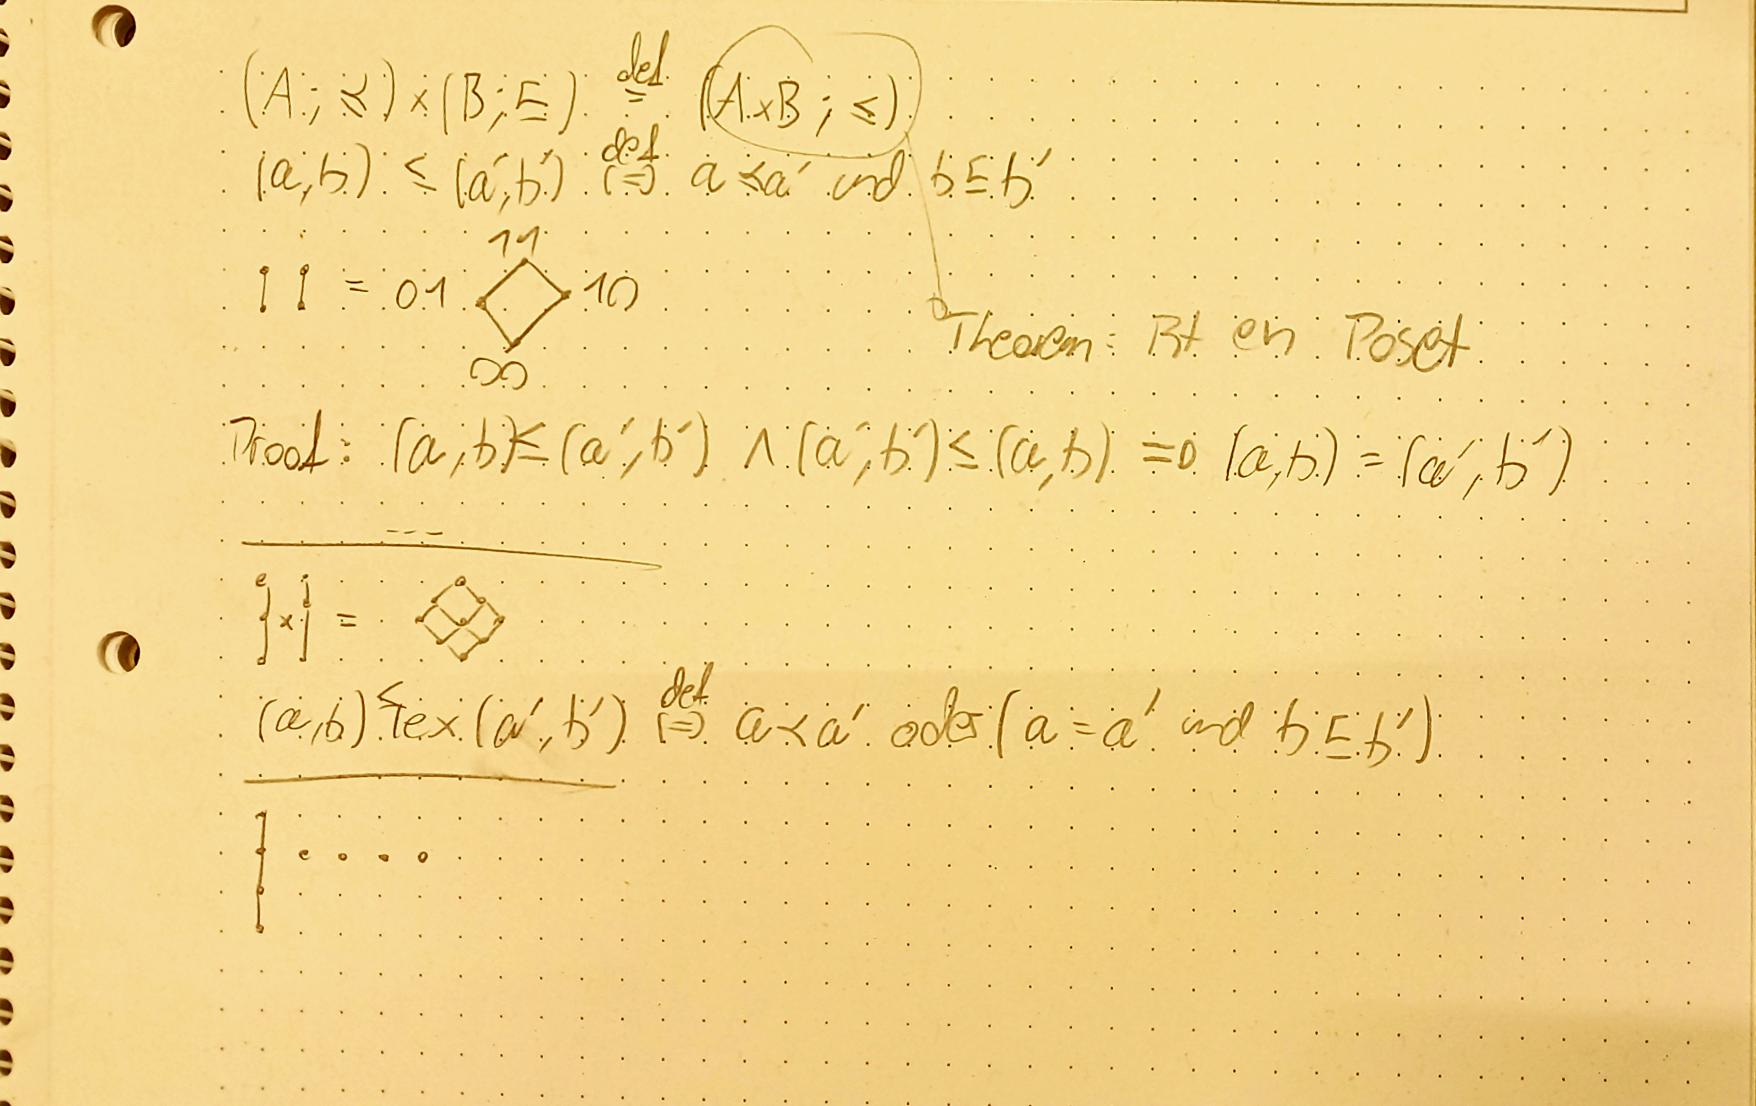 (A; ≼) × (B; ⊑) def = (A×B ; ≤)
(a,b) ≤ (a',b') def (=) a ≼ a' und b ⊑ b'
11
= 01 10
00
Theorem: Ist ein Poset
Proof: (a,b) ≤ (a',b') ∧ (a',b') ≤ (a,b) => (a,b) = (a',b')
---
× =
(a,b) ≤lex (a',b') def (=) a ≺ a' oder (a = a' und b ⊑ b')